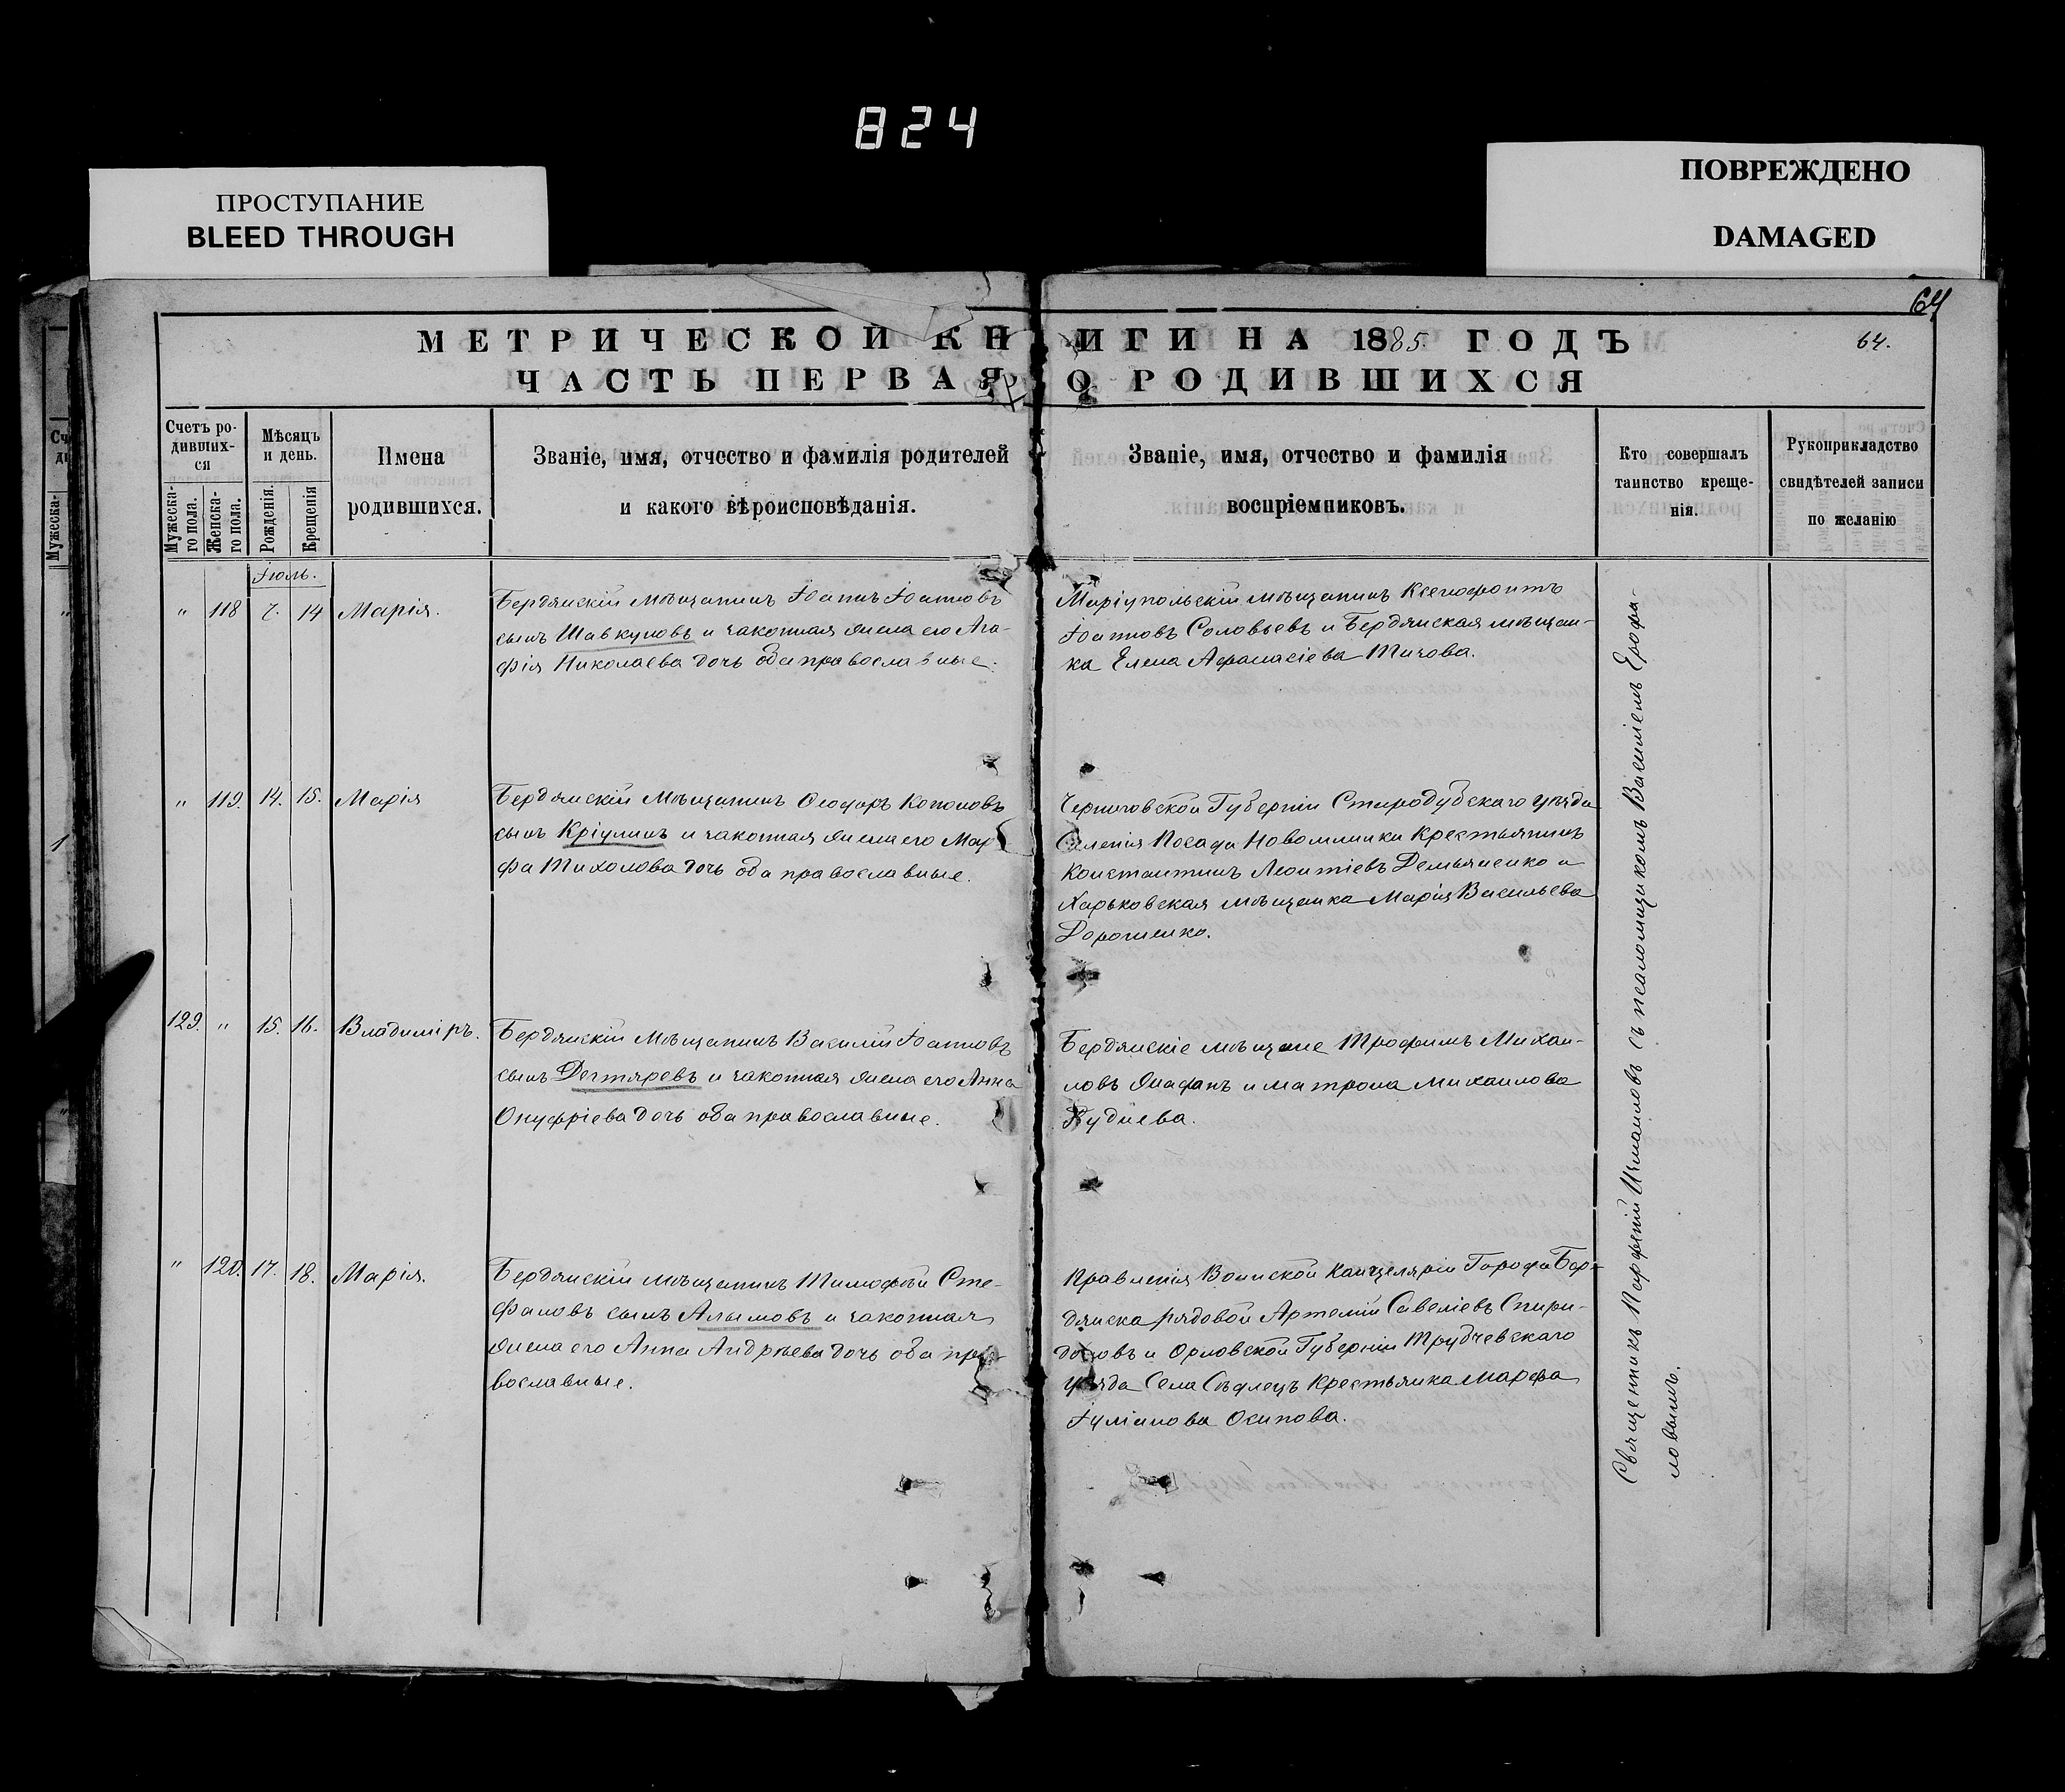 824
ПРОСТУПАНИЕ
BLEED THROUGH
ПОВРЕЖДЕНО
DAMAGED
64
МЕТРИЧЕСКОЙ КНИГИ НА 1885 ГОДЪ
64.
ЧАСТЬ ПЕРВАЯ О РОДИВШИХСЯ
Счетъ ро-
дивших-
ся
Мужеска-
го пола.
Женска-
го пола.
Мѣсяцъ
и день.
Рожденія.
Крещенія
Имена
родившихся.
Званіе, имя, отчество и фамилія родителей
и какого вѣроисповѣданія.
Званіе, имя, отчество и фамилія
воспріемниковъ.
Кто совершалъ
таинство креще-
нія.
Рукоприкладство
свидѣтелей записи
по желанію
Іюль.
" 118 7. 14 Марія.
Бердянскій мѣщанинъ Іоаннъ Іоанновъ
сынъ Шавкуновъ и законная жена его Ага-
фія Николаева дочь оба православные.
Маріупольскій мѣщанинъ Ксенофонтъ
Іоанновъ Соловьевъ и Бердянская мѣщан-
ка Елена Афанасіева Титова.
" 119. 14. 15. Марія
Бердянскій Мѣщанинъ Ѳеодоръ Кононовъ
сынъ Кріулинъ и законная жена его Мар-
фа Тихонова дочь оба православные.
Черниговской Губерніи Стародубскаго уѣзда
Селенія Посада Новомлинки Крестьянинъ
Константинъ Леонтіевъ Демьяненко и
Харьковская мѣщанка Марія Васильева
Дорошенко.
129. " 15. 16. Владиміръ.
Бердянскій Мѣщанинъ Василій Іоанновъ
сынъ Дегтяревъ и законная жена его Анна
Онуфріева дочь оба православные.
Бердянскіе мѣщане Трофимъ Михаи-
ловъ и Матрона Михаилова
" 120. 17. 18. Марія.
Бердянскій мѣщанинъ Тимофей Сте-
фановъ сынъ Алымовъ и законная
жена его Анна Андреева дочь оба пра-
вославные.
Правленія Воинской Канцеляріи Города Бер-
дянска рядовой Артемій Савеліевъ Спири-
доновъ и Орловской Губерніи Трубчевскаго
уѣзда Села Крестьянка Марфа
Іуліанова Осипова.
Священникъ Парфеній Измаиловъ съ псаломщикомъ Василіемъ Ерофа-
ловымъ.